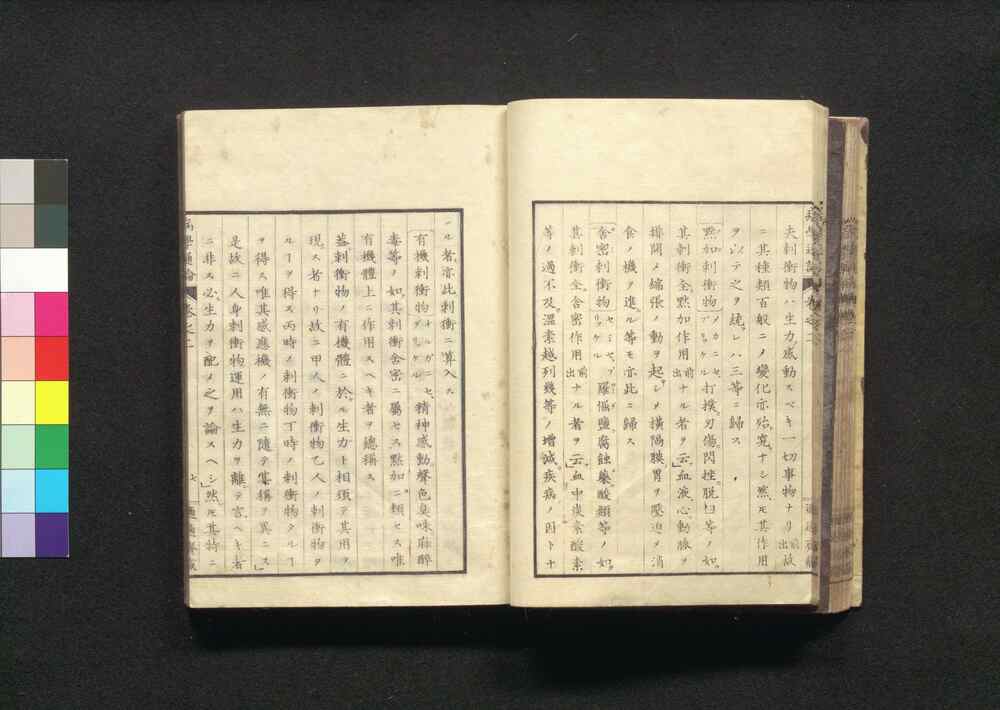 夫刺衝物ハ生力感動スベキ一切事物ナリ前出故
ニ其種類百般ニ〆變化亦殆窮ナシ然𪜈其作用
ヲシテ之ヲ統レハ三等ニ歸ス
點加刺衝物 打撲刃傷閃挫脱臼等ノ如
其刺衝全點加作用前出ナル者ヲ云血液心動脉ヲ
排開〆縮張ノ動ヲ起シメ横隔膜胃ヲ壓迫〆消
食ノ機ヲ進ル等モ亦此ニ歸ス
舎密刺衝物 羅傴鹽腐蝕藥酸類等ノ如
其刺衝全舎密作用前出ナル者ヲ云血中炭素酸素
等ノ過不及温素越列幾等ノ增減疾病ノ因トナ
ル者亦此刺衝ニ算入ス
有機刺衝物 精神感動聲色臭味麻醉
毒等ノ如其刺衝舎密ニ屬セス點加ニ類セス唯
有機體上ニ作用スヘキ者ヲ總稱ス
蓋刺衝物ノ有機體ニ於ル生力ト相須テ其用ヲ
現ス者ナリ故ニ甲人ノ刺衝物乙人ノ刺衝物タ
ルヿヲ得ス丙時ノ刺衝物丁時ノ刺衝物タルヿ
ヲ得ス唯其感應機ノ有無ニ隨テ其稱ヲ異ニス
是故ニ人身刺衝物運用ハ生力ヲ離テ言ヘキ者
ニ非ス必生力ヲ配〆之ヲ論スヘシ然𪜈其特ニ
病學通論 卷之二
七